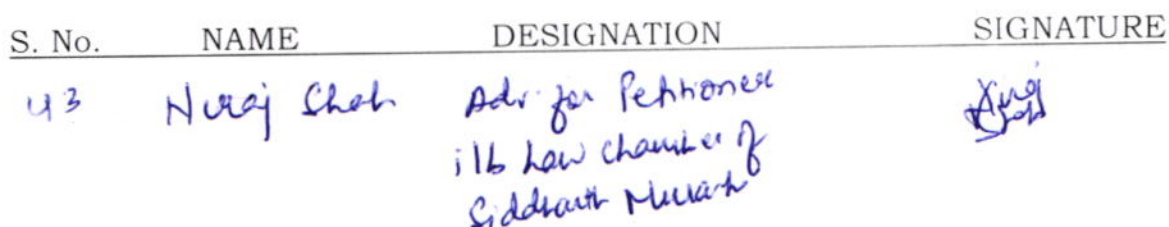 S. No. NAME DESIGNATION SIGNATURE
43 Niraj Shah Adv. for Petitioner
i/b Law Chamber of
Siddharth